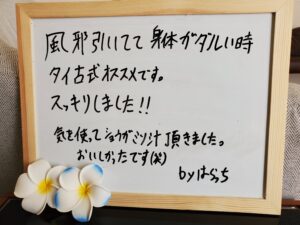 風邪引いてて身体がダルい時
タイ古式オススメです。
スッキリしました!!
気を使ってショウガミソ汁頂きました。
おいしかったです(笑)
byはらっち